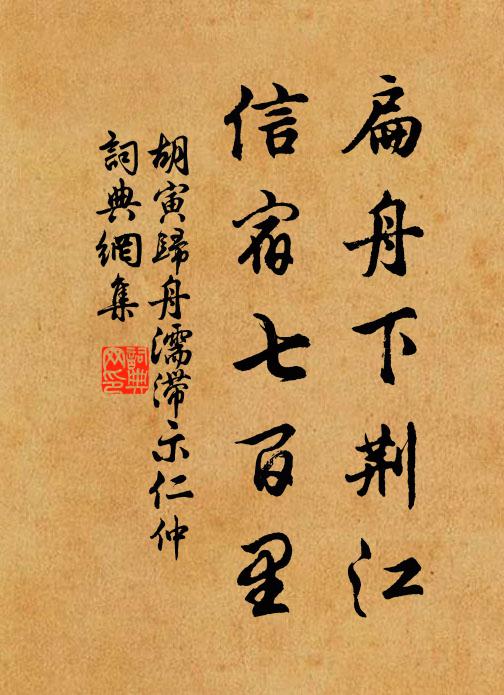 扁舟下荆江
信宿七百里
胡寅歸舟濡滯示仁仲
詞典網集
詞典
网印